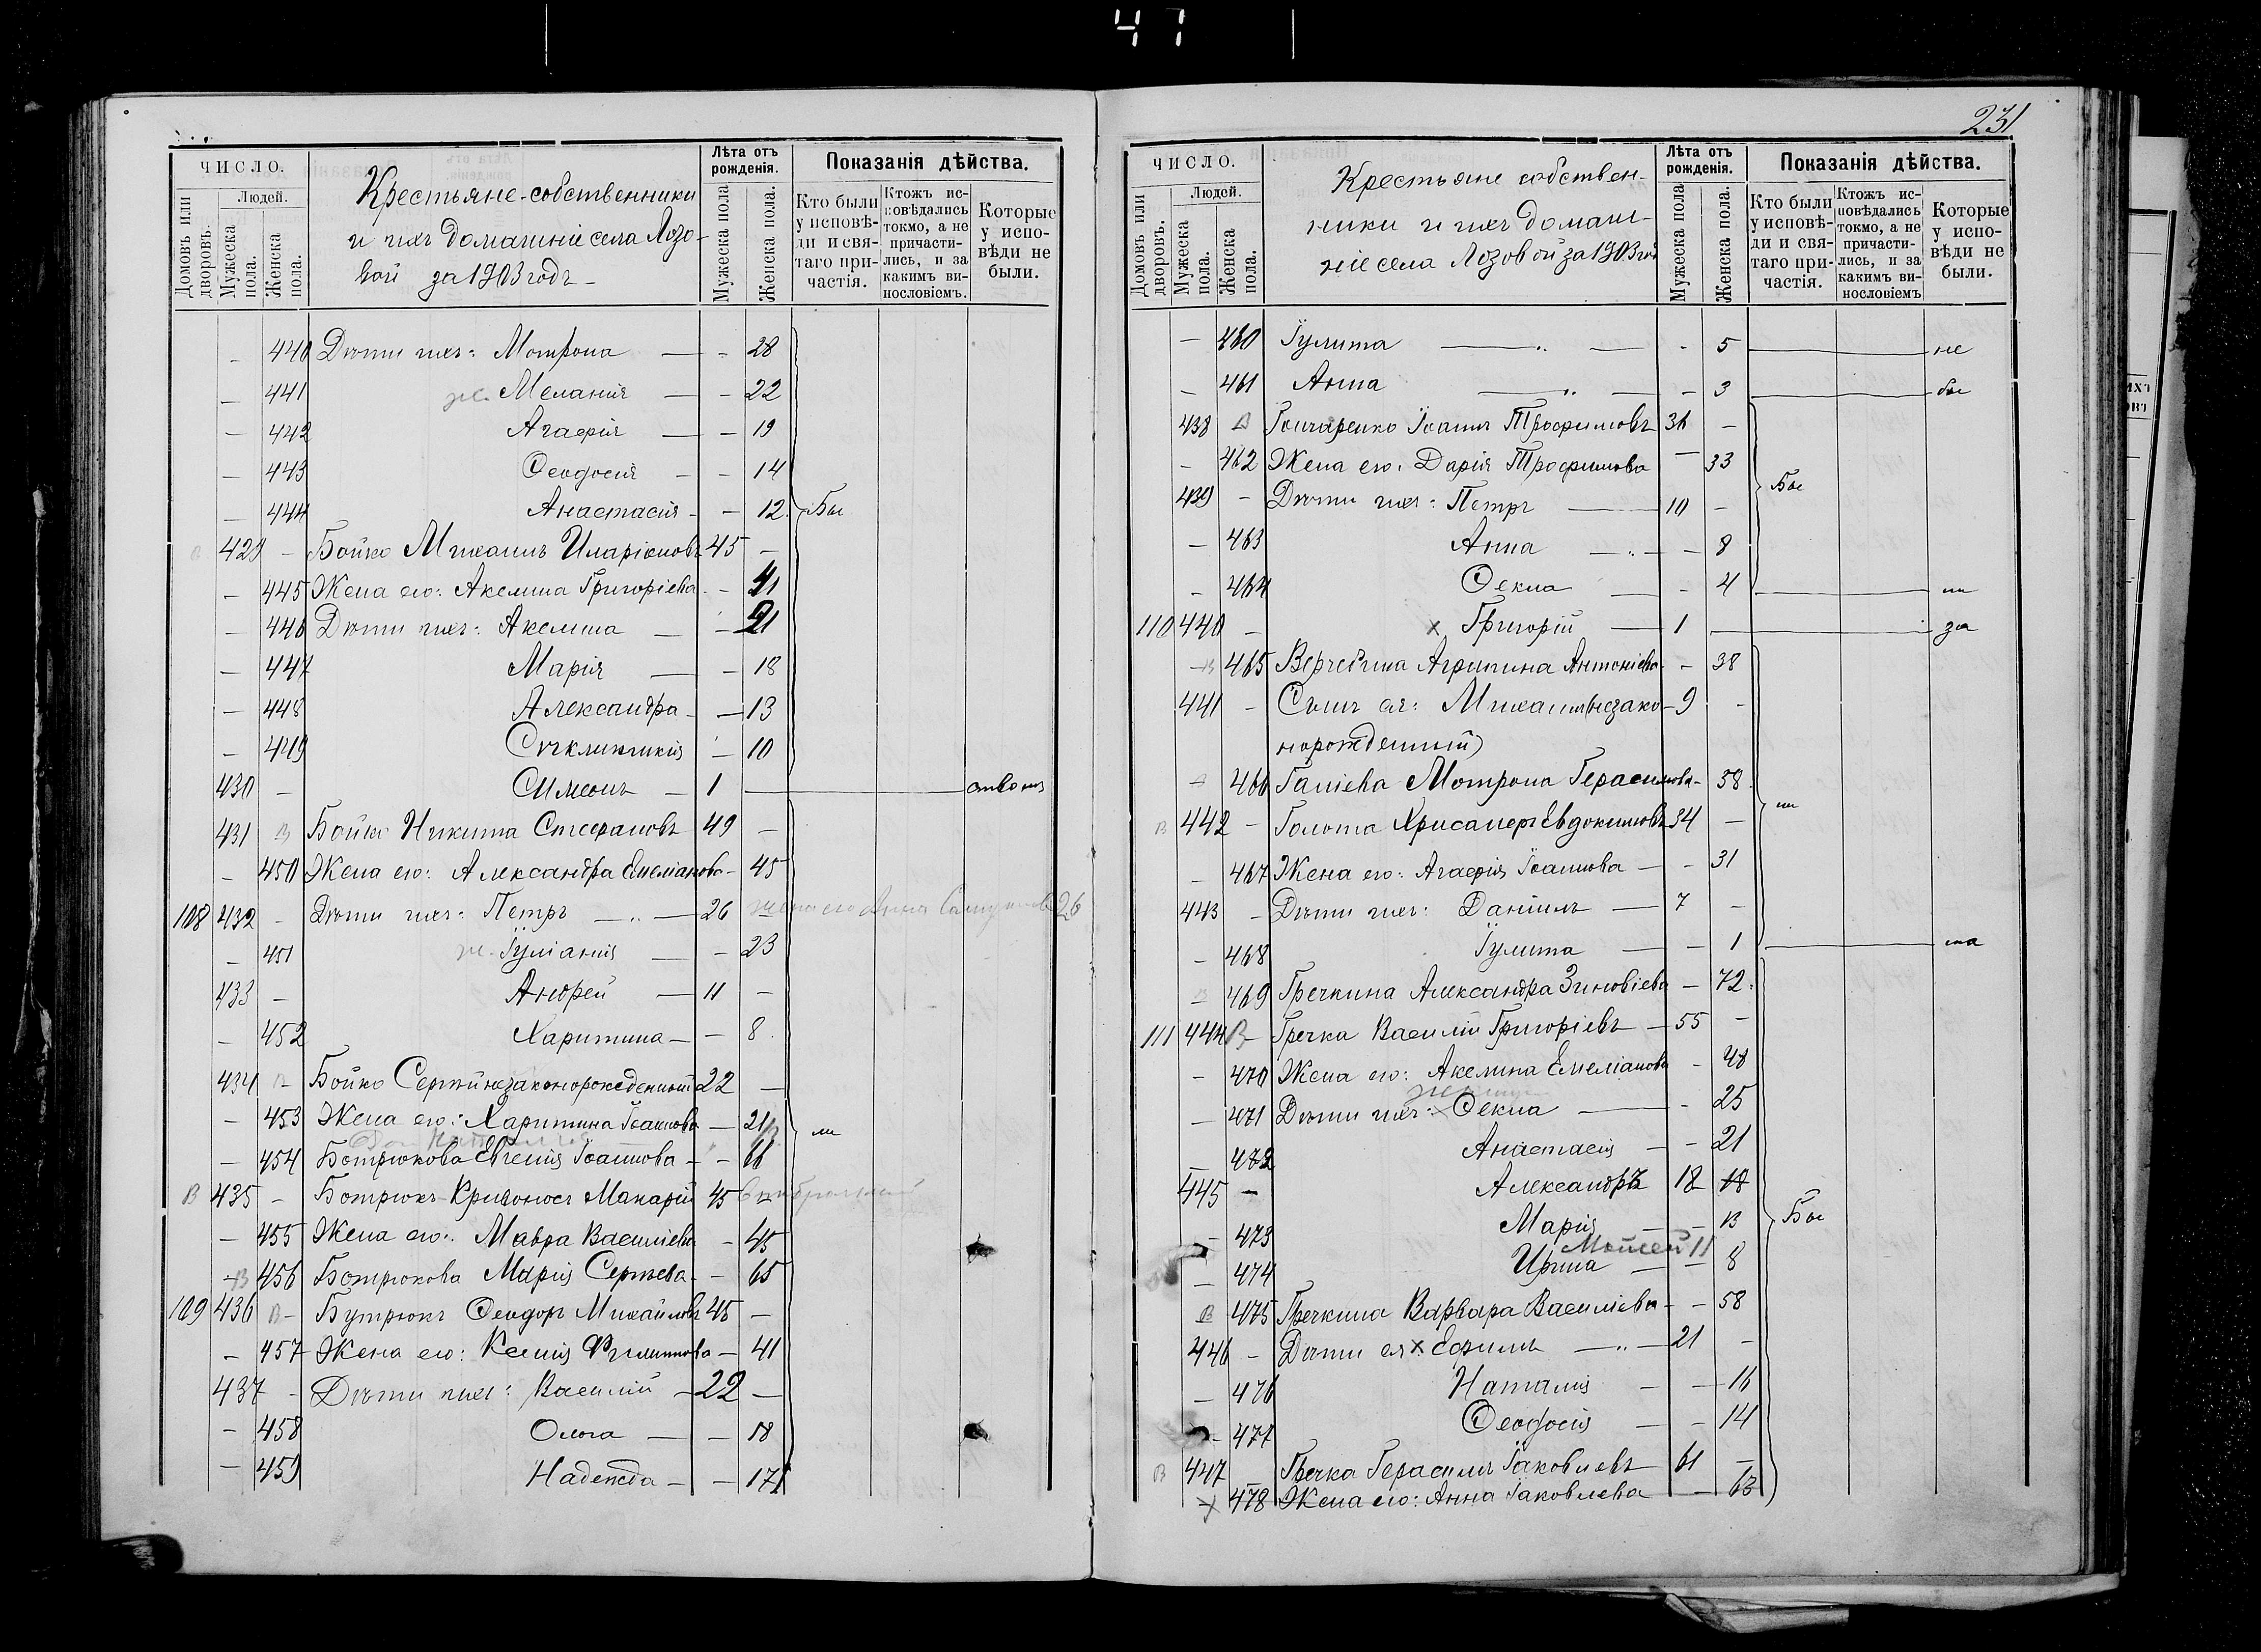 47
ЧИСЛО.
Домовъ или дворовъ.
Людей.
Мужеска пола.
Женска пола.
Крестьяне-собственники
и ихъ домашніе села Лозо-
вой за 1903 годъ
Лѣта отъ рожденія.
Мужеска пола
Женска пола.
Показанія дѣйства.
Кто были у исповѣ-ди и свя-таго при-частія.
Ктожъ ис-повѣдались токмо, а не причасти-лись, и за какимъ ви-нословіемъ.
Которые у испо-вѣди не были.
— 440 Дѣти ихъ: Мотрона — - 28
— 441 ж. Меланія — - 22
— 442 Агафія — - 19
— 443 Ѳеодосія - - 14
— 444 Анастасія - - 12 Бы
429 - Бойко Михаилъ Иларіоновъ 45 —
— 445 Жена его: Акелина Григоріева - 41
— 446 Дѣти ихъ: Акелина — - 21
— 447 Марія — - 18
— 448 Александра - — 13
— 449 Сѵнклитикія — 10
430 - Симеонъ — 1
431 В Бойко Никита Стефановъ 49 —
— 450 Жена его: Александра Емеліанова - 45
108 432 - Дѣти ихъ: Петръ — 26 жена его Анна 26
— 451 ж. Іуліанія — - 23
433 — Андрей — 11 -
— 452 Харитина — - 8
434 - Бойко Сергій незаконорожденный 22 —
— 453 Жена его: Харитина Іоаннова — 21 ли
— 454 Ботрюкова Евгенія Іоаннова - - 66
В 435 - Ботрюкъ-Кривоносъ Макарій 45
— 455 Жена его: Мавра Василіева - 45
-В 456 Ботрюкова Марія Сергѣева - - 65
109 436 В- Бутрюкъ Ѳеодоръ Михайловъ 45 —
- 457 Жена его: Ксенія Филиппова — 41
437 - Дѣти ихъ: Василій — 22 —
- 458 Ольга — — 18
— 459 Надежда — - 17
231
ЧИСЛО.
Домовъ или дворовъ.
Людей.
Мужеска пола.
Женска пола.
Крестьяне собствен-
ники и ихъ домаш-
ніе села Лозовой за 1903 год
Лѣта отъ рожденія.
Мужеска пола
Женска пола.
Показанія дѣйства.
Кто были у исповѣ-ди и свя-таго при-частія.
Ктожъ ис-повѣдались токмо, а не причасти-лись, и за какимъ ви-нословіемъ
Которые у испо-вѣди не были.
— 460 Іулита — - 5 не
— 461 Анна — - 3 бы
438 В Гончаренко Іоаннъ Трофимовъ 36 -
- 462 Жена его: Дарія Трофимова — 33
439 - Дѣти ихъ: Петръ — 10 - Бы
— 463 Анна — - 8
- 464 Ѳекла — - 4 ли
110 440 - х Григорій — 1 за
-В 465 Агрипина Антоніева - 38
441 - Сынъ ея: Михаилъ (незако- 9 -
норожденный)
466 Галіева Мотрона Герасимова - 58
В 442 - Голота Хрисанфъ Евдокимовъ 34 — ли
— 467 Жена его: Агафія Іоаннова — - 31
443 - Дѣти ихъ: Даніилъ — 7 -
- 468 Іулита — - 1
469 Гречкина Александра Зиновіева — 72
111 444 В- Гречка Василій Григоріевъ — 55 —
- 470 Жена его: Акелина Емеліанова - 48
— 471 Дѣти ихъ: х Ѳекла — - 25
— 472 Анастасія — - 21
445 - Александръ 18 18
- 473 Марія — - 13 Бы
Моисей 11
— 474 Ирина — - 8
В 475 Гречкина Варвара Василіева - - 58
446 - Дѣти ея х Ефимъ — 21 -
— 476 Наталія — - 16
- 477 Ѳеодосія — - 14
В 447 — Гречка Герасимъ Іаковлевъ 61 —
х 478 Жена его: Анна Іаковлева — 63